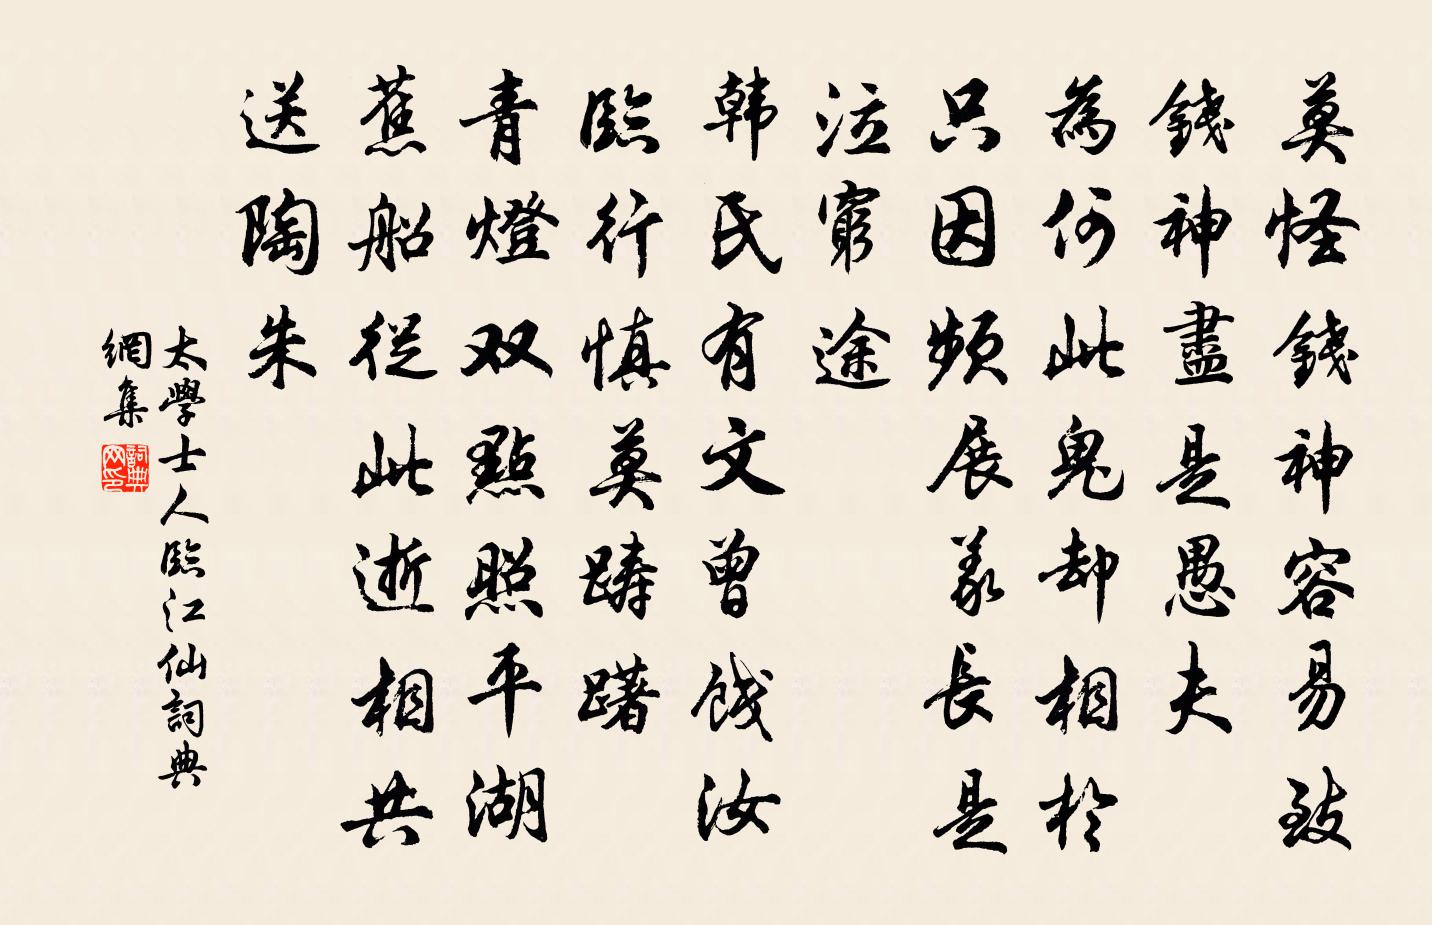 莫怪錢神容易致
錢神盡是愚夫
為何此鬼却相於
只因頻展義長是
泣窮途
韩氏有文曾餞汝
臨行慎莫躊躇
青燈双點照平湖
蕉船從此逝相共
送陶朱
太學士人臨江仙詞典
網集
詞典
网印